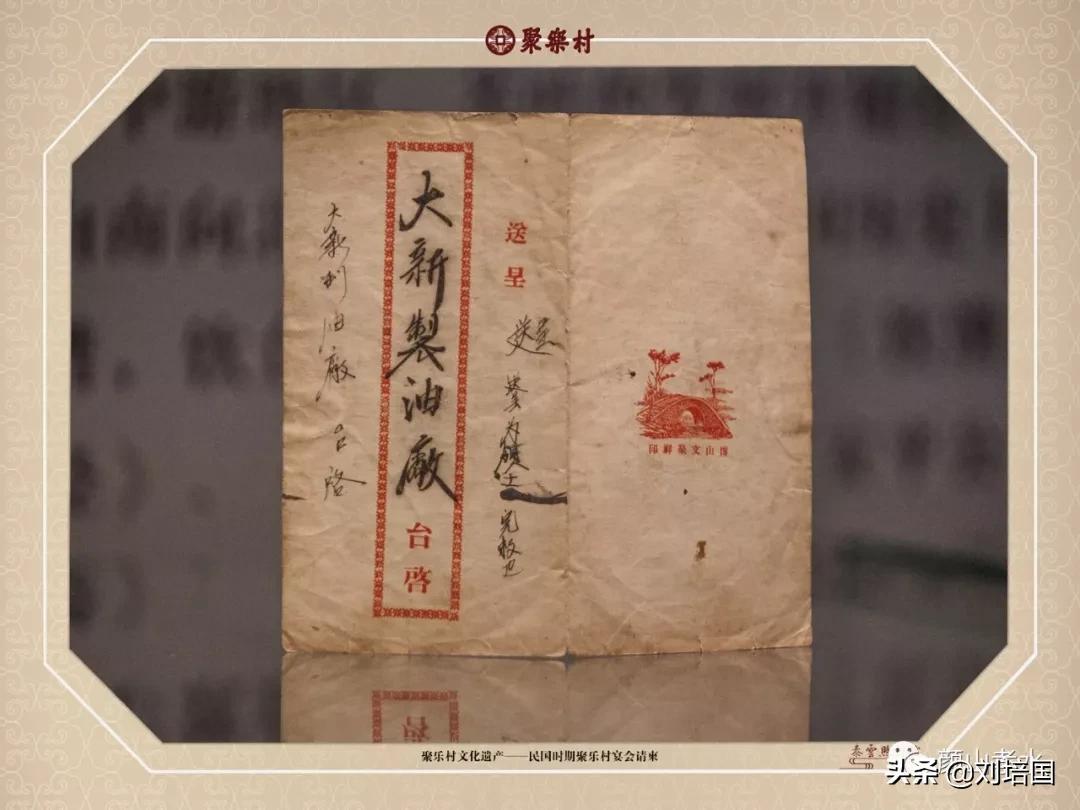 聚樂村
送呈
大新製油廠
台啓
大新利油廠 台啓
印鮮泉文山博
聚乐村文化遗产——民国时期聚乐村宴会请柬
颜山老水
头条 @刘培国